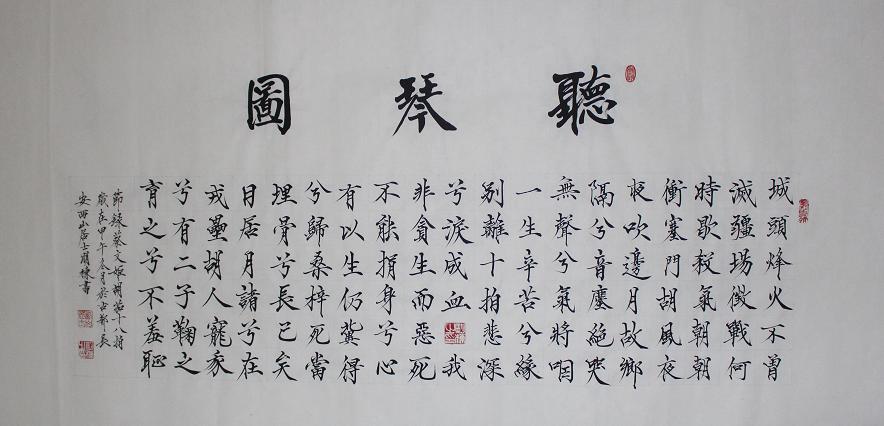 聽琴圖
城頭烽火不曾
滅疆場徵戰何
時歇殺氣朝朝
衝塞門胡風夜
夜吹邊月故鄉
隔兮音塵絕哭
無聲兮氣將咽
一生辛苦兮緣
別離十拍悲深
兮淚成血我
非貪生而惡死
不能捐身兮心
有以生仍冀得
兮歸桑梓死當
埋骨兮長已矣
日居月諸兮在
戎壘胡人寵我
兮有二子鞠之
育之兮不羞恥
節錄蔡文姬胡笳十八拍
歲在甲午冬月於古都長
安西山居士棟書